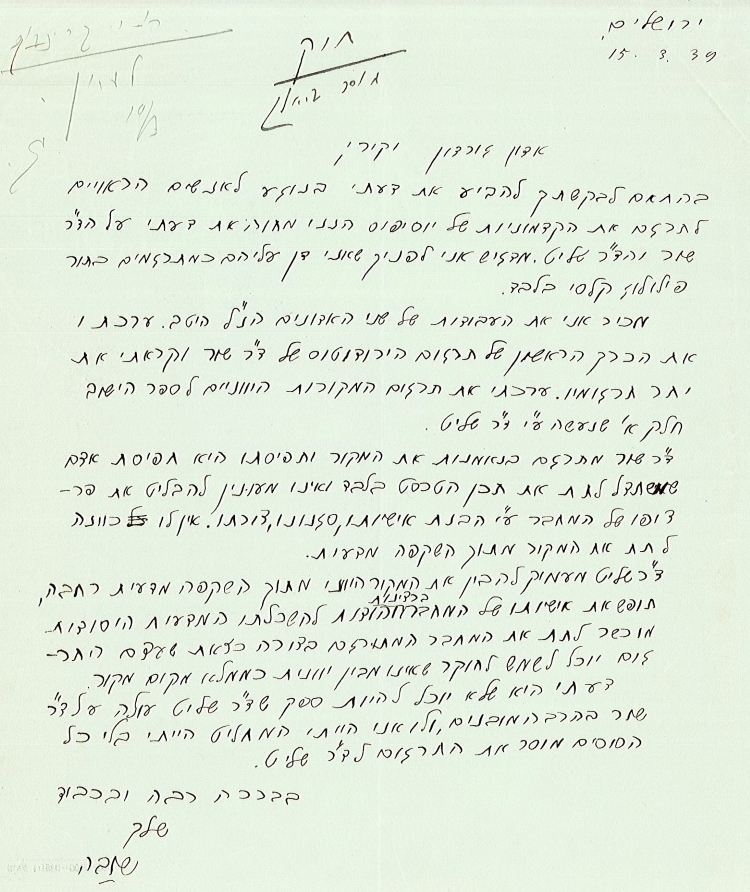 ירושלים,
15. 3. 39
חוק
מוסד ביאליק
לעיין
אדון גורדון היקר,
בהתאם לבקשתך להביע את דעתי בנוגע לאנשים הראויים
לתרגם את הקדמוניות של יוסיפוס הנני מחוה את דעתי על הד״ר
שור והד״ר שליט. מדגיש אני לפניך שאני דן עליהם כמתרגמים בתור
פילולוג קלסי בלבד.
מכיר אני את העבודות של שני האדונים הנ״ל היטב. ערכתי
את הכרך הראשון של תרגום הירודוטוס של ד״ר שור וקראתי את
יתר תרגומיו. ערכתי את תרגום המקורות היווניים לספר הישוב
חלק א׳ שנעשה ע״י ד״ר שליט.
ד״ר שור מתרגם בנאמנות את המקור ותפיסתו היא תפיסת אדם
שמשתדל לתת את תכן הטכסט בלבד ואינו מעונין להבליט את פר-
צופו של המחבר ע״י הבנת אישיותו, סגנונו, צורתו. אין לו כוונה
לתת את המקור מתוך השקפה מדעית.
ד״ר שליט מעמיק להבין את המקור היווני מתוך השקפה מדעית רחבה,
תופש את אישיותו של המחבר ברצינות והודות להשכלתו המדעית היסודית
מוכשר לתת את המחבר המתורגם בצורה כזאת שעצם התר-
גום יוכל לשמש לחוקר שאינו מבין יוונית כממלא מקום מקור.
דעתי היא שלא יוכל להיות ספק שד״ר שליט עולה על ד״ר
שור בהרבה מובנים, ולו אני הייתי המחליט הייתי בלי כל
הסוסים מוסר את התרגום לד״ר שליט.
בברכה רבה ובכבוד
שלך